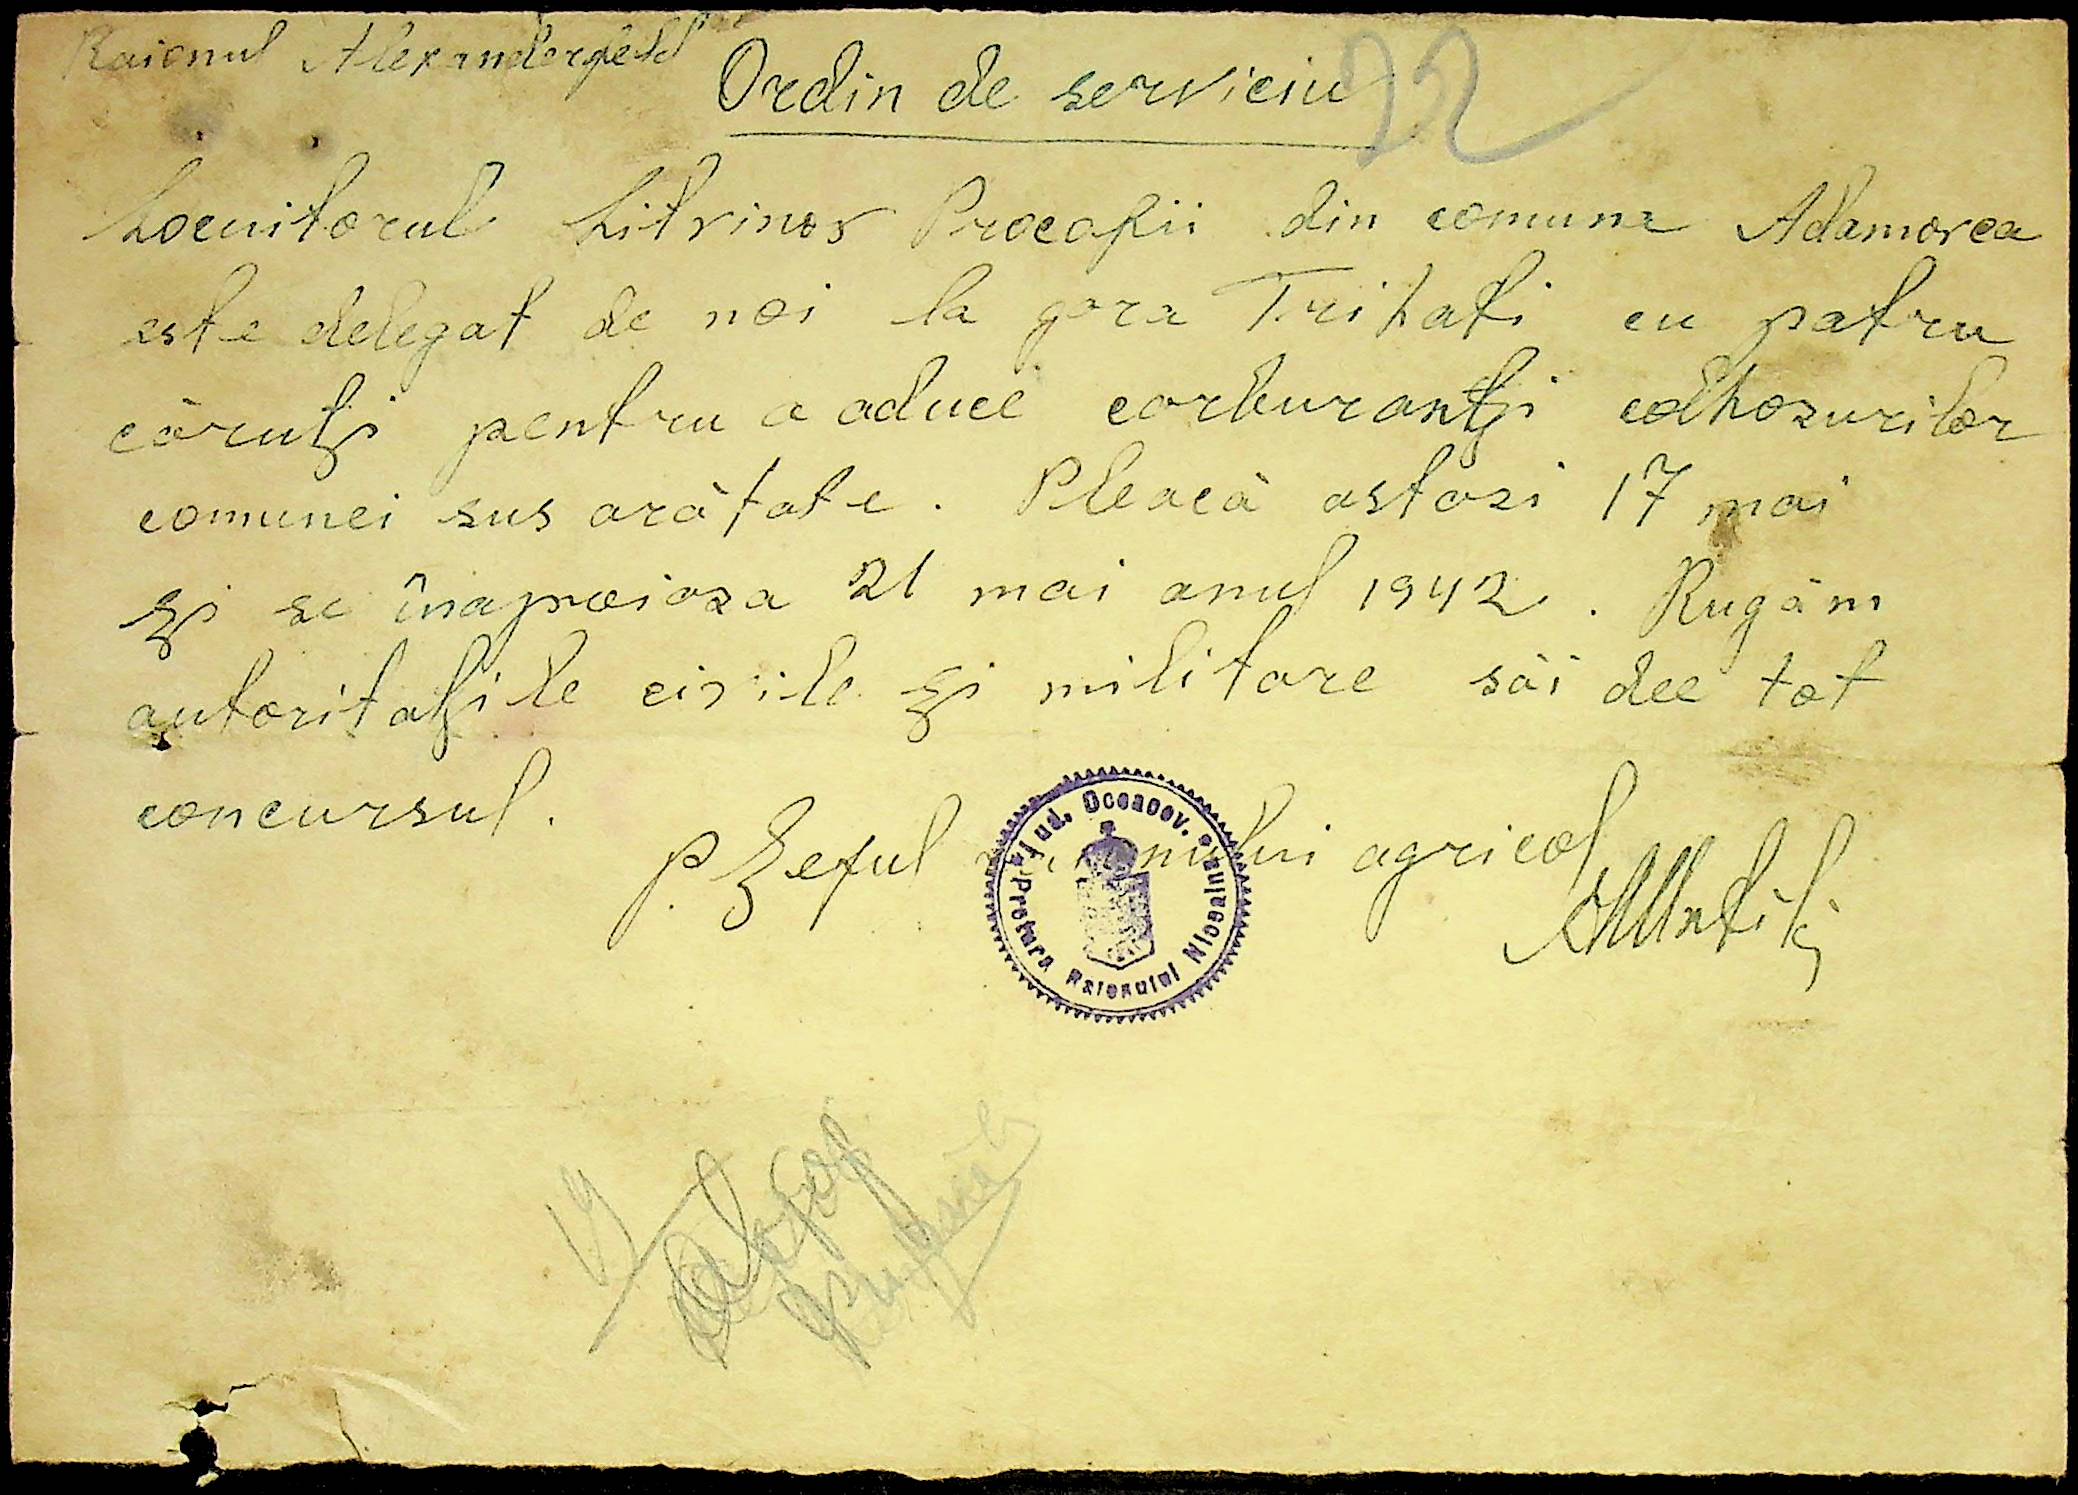 Raionul Alexanderfeld
Ordin de serviciu
22
Locuitorul Litvinov Procopii din comuna Adamovca
este delegat de noi la gara Trihati cu patru
căruți pentru a aduce carburanți colhozurilor
comunei sus arătate. Pleacă astazi 17 mai
și se înapoiaza 21 mai anul 1942. Rugăm
autoritațile civile și militare săi dee tot
concursul.
p. Șeful raionului agricol
Jud. Oceacov.
Pretura Raionului Nicoaluzue